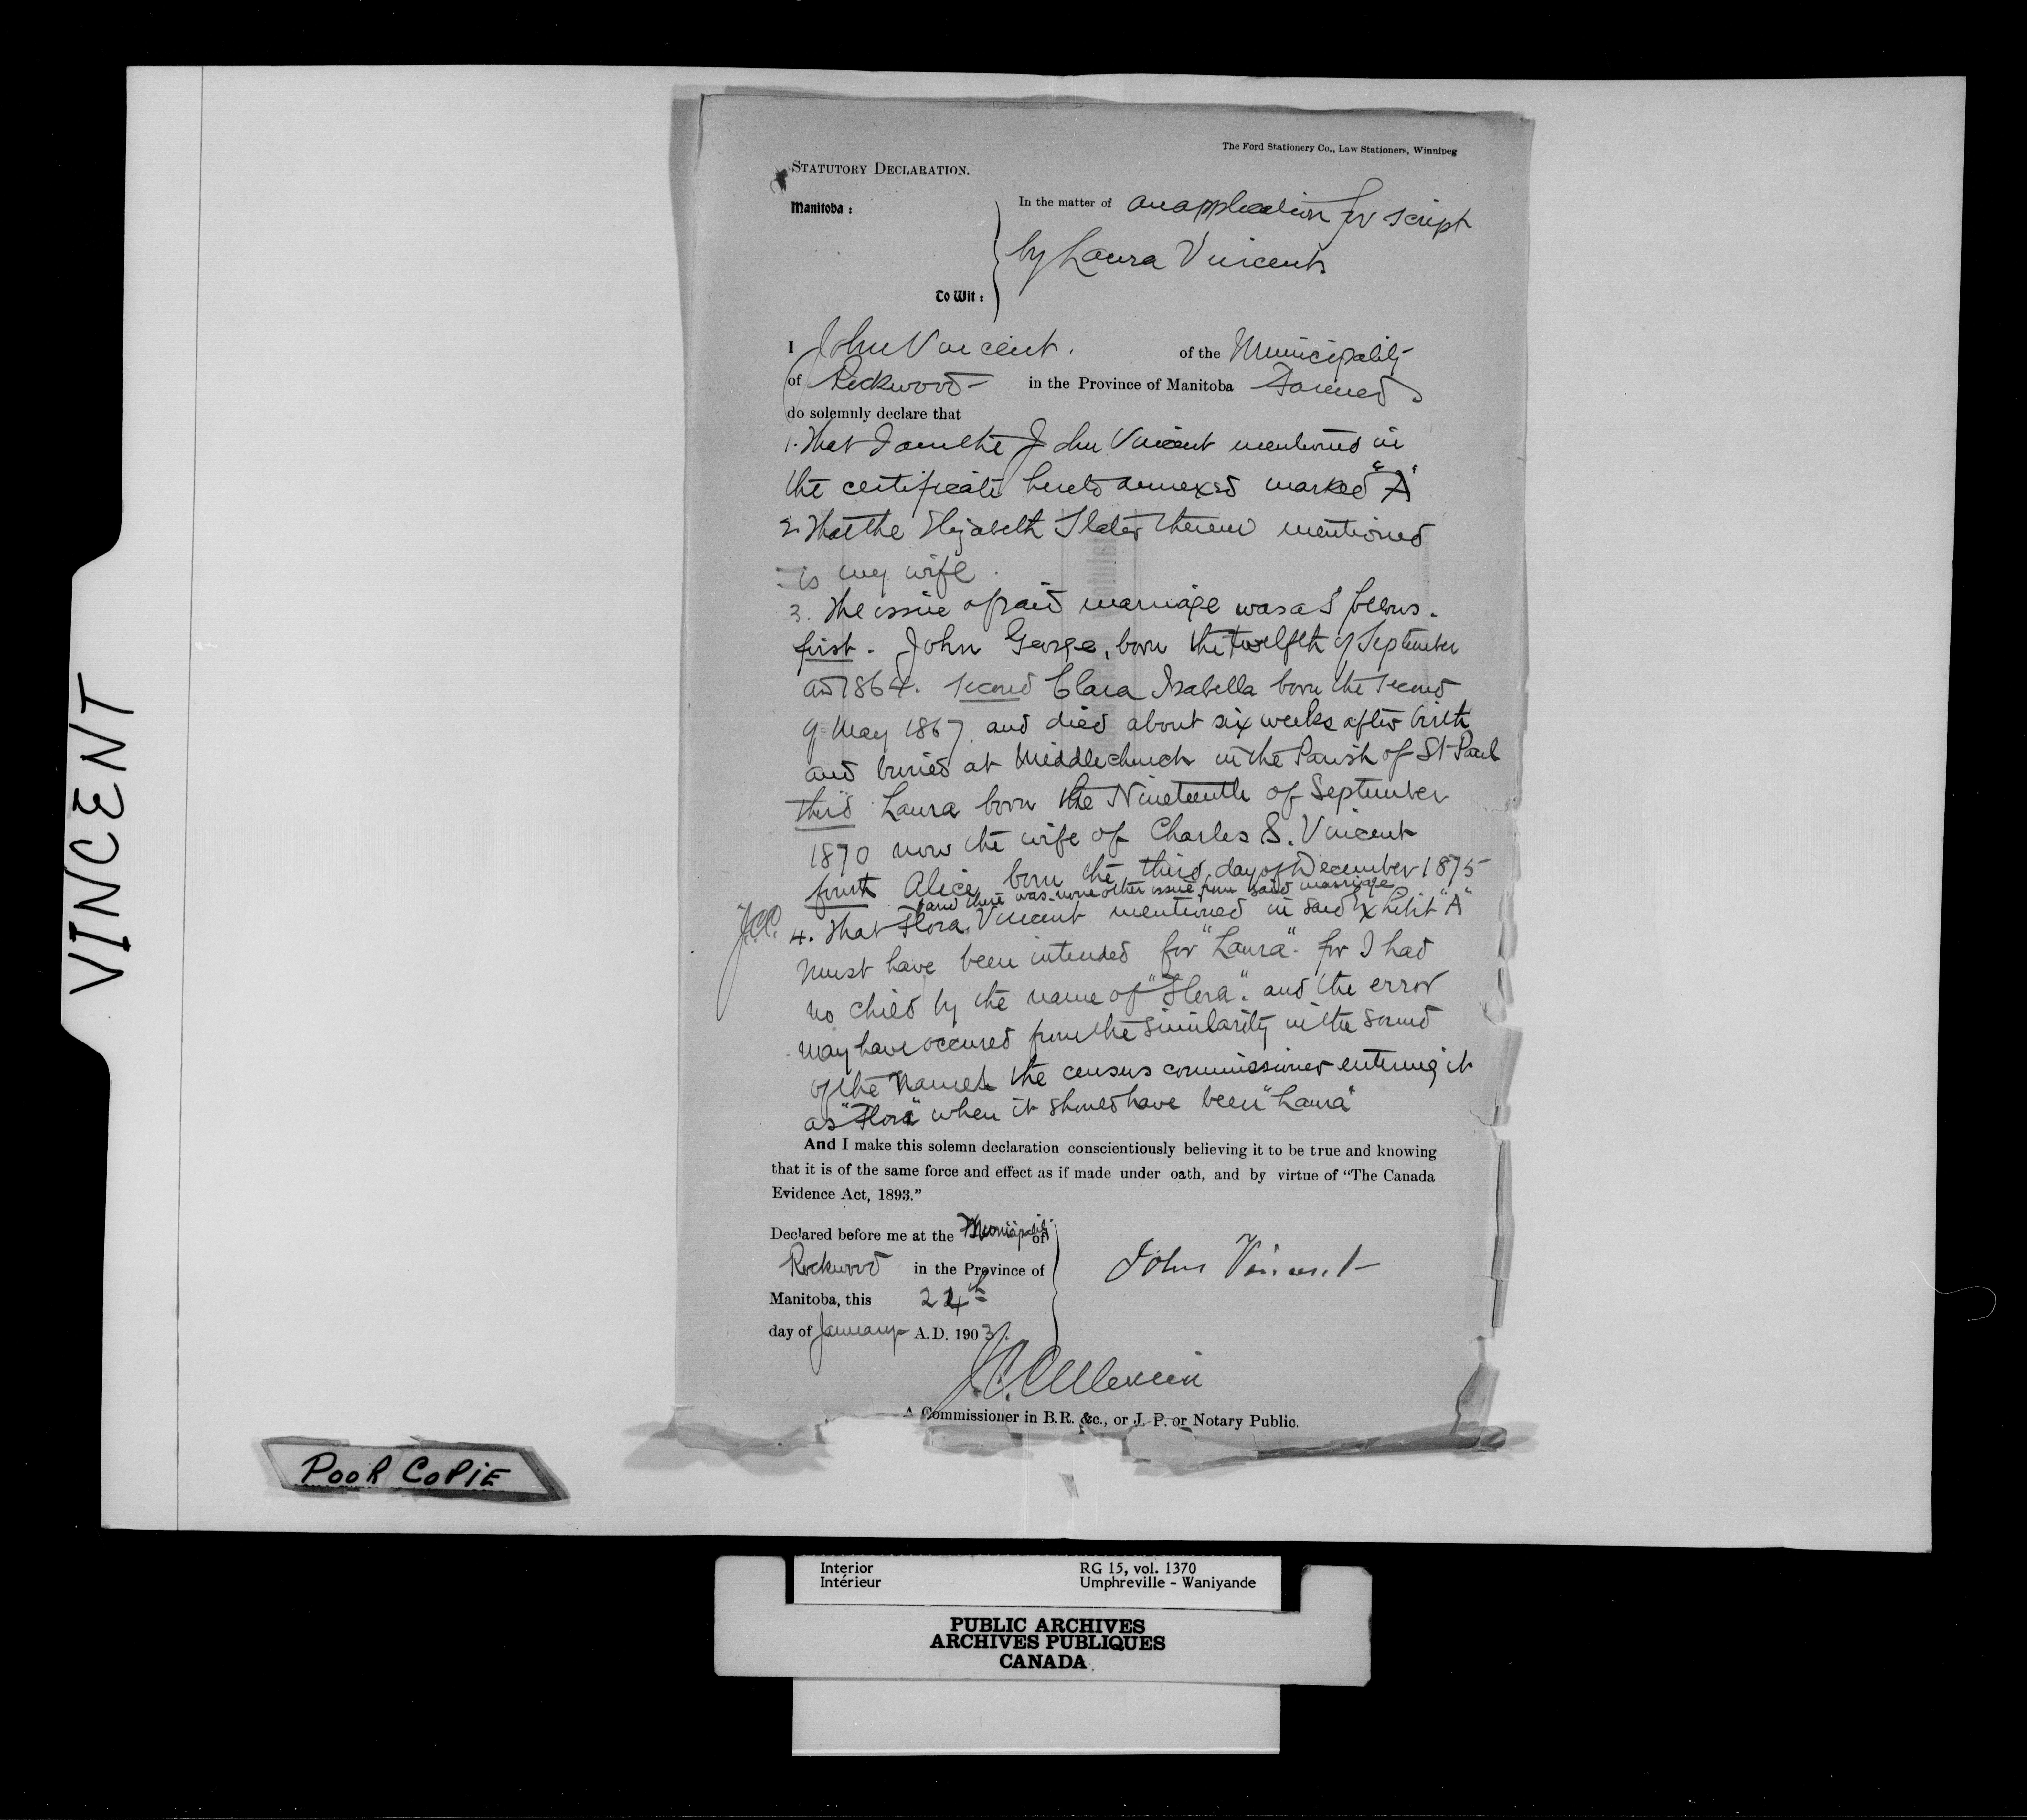 The Ford Stationery Co., Law Stationers, Winnipeg
STATUTORY DECLARATION.
Manitoba:
In the matter of an application for script
by Laura Vincent
To Wit:
I John Vincent. of the Municipality
of Rockwood in the Province of Manitoba Farmer
do solemnly declare that
1. That I am the John Vincent mentioned in
the certificate hereto annexed marked "A"
2. That the Elizabeth Slater therein mentioned
is my wife.
3. The issue of said marriage was as follows.
first. John George, born the twelfth of September
AD 1864. second Clara Isabella born the second
of May 1867 and died about six weeks after birth
and buried at Middlechurch in the Parish of St Paul
third Laura born the Nineteenth of September
1870 now the wife of Charles S. Vincent
fourth Alice born the third day of December 1875
and there was none other issue from said marriage
4. That Flora Vincent mentioned in said Exhibit "A"
must have been intended for "Laura". for I had
no child by the name of "Flora". and the error
may have occured from the similarity in the sound
of the names the census commissioner entering it
as "Flora" when it should have been "Laura"
And I make this solemn declaration conscientiously believing it to be true and knowing
that it is of the same force and effect as if made under oath, and by virtue of "The Canada
Evidence Act, 1893."
Declared before me at the Municipality of
Rockwood in the Province of
Manitoba, this 24th
day of January A.D. 1903.
John Vincent
A Commissioner in B.R. &c., or J. P. or Notary Public.
VINCENT
POOR COPIE
Interior RG 15, vol. 1370
Intérieur Umphreville - Waniyande
PUBLIC ARCHIVES
ARCHIVES PUBLIQUES
CANADA